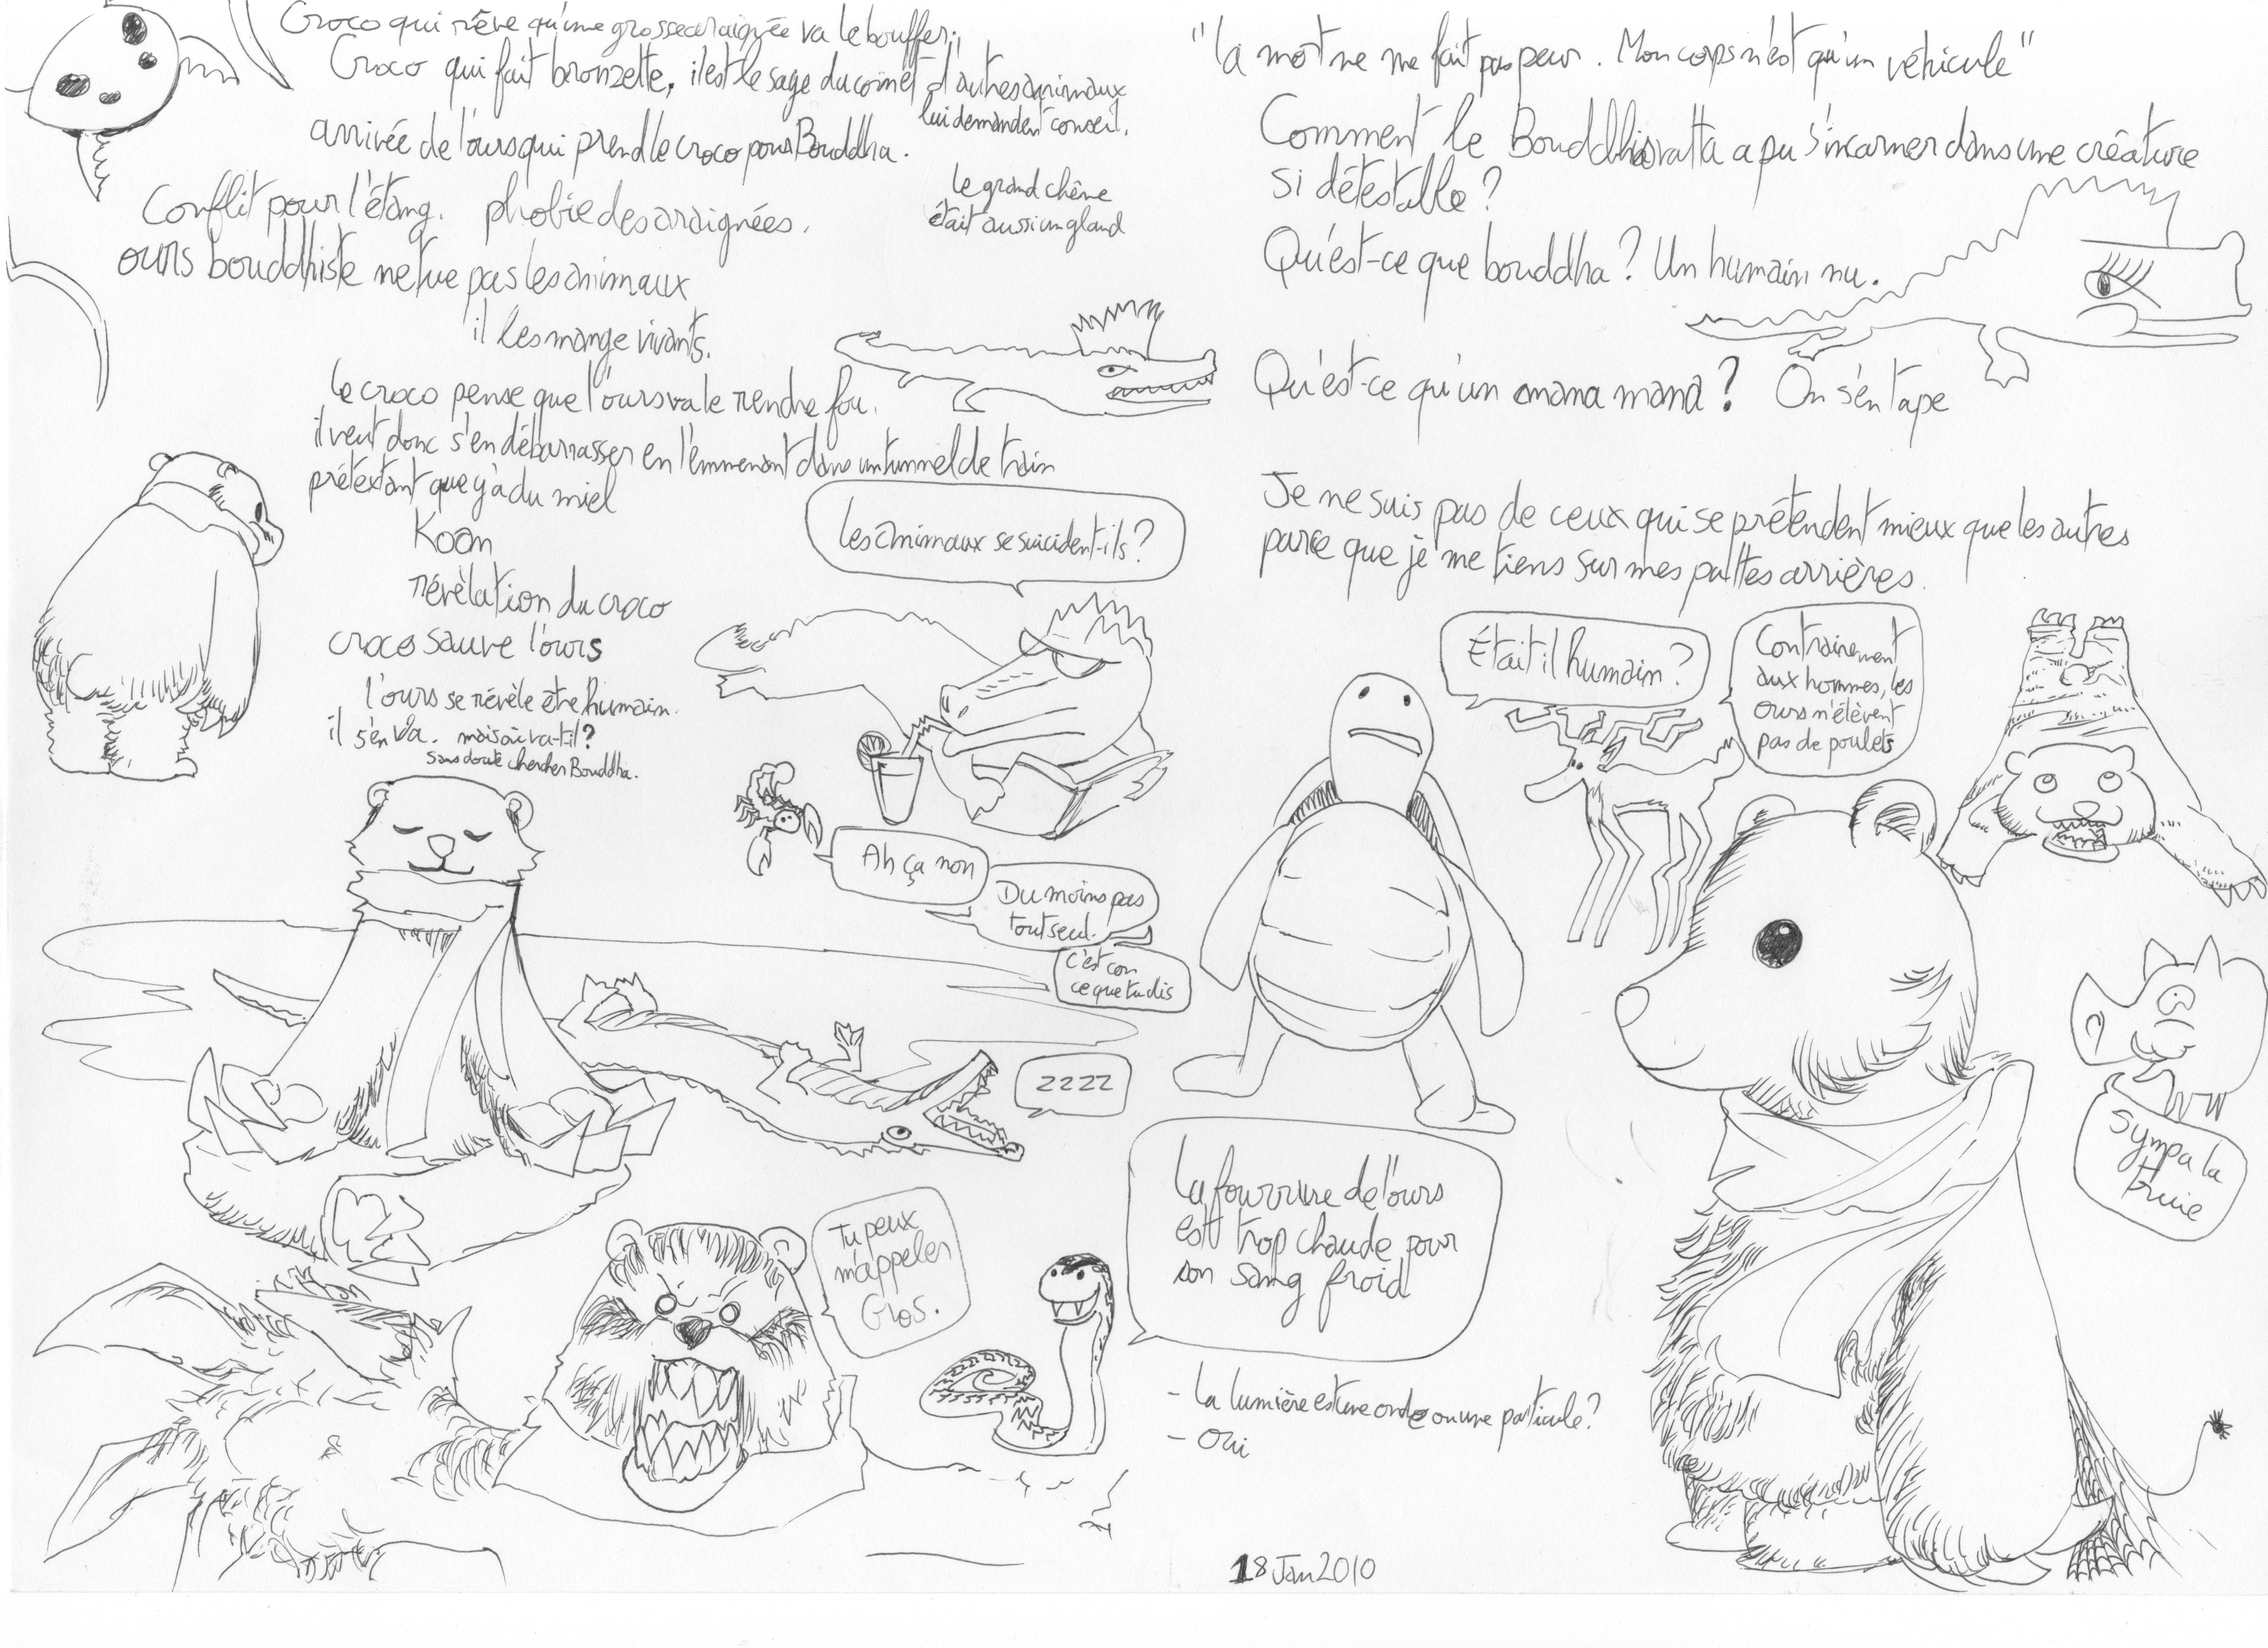 Croco qui rêve qu'une grosse araignée va le bouffer.
Croco qui fait bronzette, il est le sage du coin et d'autres animaux
lui demandent conseil.
arrivée de l'ours qui prend le croco pour Bouddha.
Conflit pour l'étang. phobie des araignées.
le grand chêne
était aussi un gland
ours bouddhiste ne tue pas les animaux
il les mange vivants.
Le croco pense que l'ours va le rendre fou.
il veut donc s'en débarrasser en l'emmenant dans un tunnel de train
prétextant que y'a du miel
Koan
révèlation du croco
croco sauve l'ours
l'ours se révèle être humain.
il s'en va. mais où va-t-il?
Sans doute chercher Bouddha.
Les animaux se suicident-ils?
Ah ça non
Du moins pas
tout seul.
C'est con
ce que tu dis
ZZZZ
Tu peux
m'appeler
Glos.
"la mort ne me fait pas peur. Mon corps n'est qu'un véhicule"
Comment le Bouddhisvatta a pu s'incarner dans une créature
si détestable?
Qu'est-ce que bouddha? Un humain nu.
Qu'est-ce qu'un mana mana? On s'en tape
Je ne suis pas de ceux qui se prétendent mieux que les autres
parce que je me tiens sur mes pattes arrières.
Était il humain?
Contrairement
aux hommes, les
ours n'élèvent
pas de poulets
Sympa la
truie
La fourrure de l'ours
est trop chaude pour
son sang froid
- La lumière est une onde ou une particule?
- Oui
18 Jan 2010